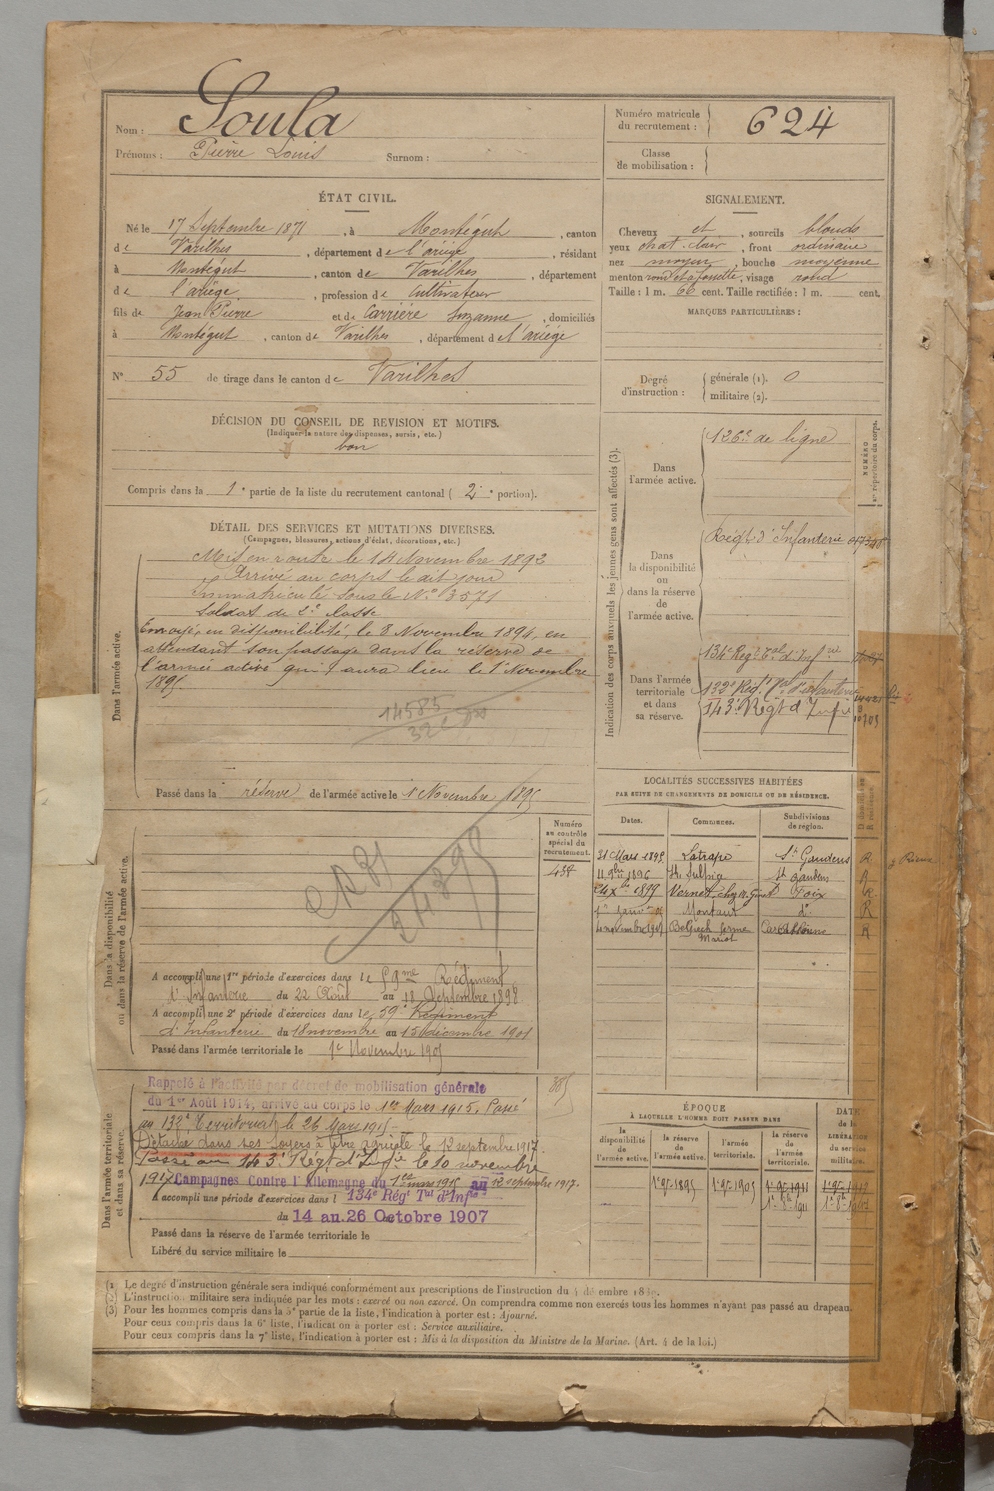 Nom : Soula
Prénoms : Pierre Louis Surnom :
Numéro matricule du recrutement : 624
Classe de mobilisation :
ÉTAT CIVIL.
Né le 17 Septembre 1871, à Montégut, canton
de Varilhes, département de l'ariège, résidant
à Montégut, canton de Varilhes, département
de l'ariège, profession de Cultivateur
fils de Jean Pierre et de Carrière Suzanne, domiciliés
à Montégut, canton de Varilhes, département de l'ariège
N° 55 de tirage dans le canton de Varilhes
SIGNALEMENT.
Cheveux et, sourcils blonds
yeux chat. clair, front ordinaire
nez moyen, bouche moyenne
menton rond et à fossette; visage rond
Taille : 1 m. 66 cent. Taille rectifiée : 1 m. cent.
MARQUES PARTICULIÈRES :
Degré d'instruction : générale (1). 0
militaire (2).
DÉCISION DU CONSEIL DE REVISION ET MOTIFS.
(Indiquer la nature des dispenses, sursis, etc.)
bon
Compris dans la 1e partie de la liste du recrutement cantonal (2e portion).
DÉTAIL DES SERVICES ET MUTATIONS DIVERSES.
(Campagnes, blessures, actions d'éclat, décorations, etc.)
Dans l'armée active.
Mis en route le 14 Novembre 1892
Arrivé au corps le dit jour
Immatriculé sous le N° 3571
Soldat de 2e classe
Envoyé en disponibilité, le 8 Novembre 1894, en
attendant son passage dans la réserve de
l'armée active qui aura lieu le 1er Novembre
1895
14585
Passé dans la réserve de l'armée active le 1er Novembre 1895
Indication des corps auxquels les jeunes gens sont affectés (3).
NUMÉRO au répertoire du corps.
Dans l'armée active.
126e de ligne
Dans la disponibilité ou dans la réserve de l'armée active.
Régt d'Infanterie
Dans l'armée territoriale et dans sa réserve.
134e Régt Tal d'Infrie
132e Régt Tal d'infanterie
143e Régt d'Infie
LOCALITÉS SUCCESSIVES HABITÉES
PAR SUITE DE CHANGEMENTS DE DOMICILE OU DE RÉSIDENCE.
Dates. Communes. Subdivisions de région. D domicile ou R résidence.
31 Mars 1895 Latrape St Gaudens R
11 9bre 1896 Ste Sulpice St Gaudens R
24 Xbre 1899 Vernet, chez M. Foix R
1er Janvier Montaut do R
Novembre 1901 Belpech ferme Mariol Carcassonne R
Numéro au contrôle spécial du recrutement.
432
Dans la disponibilité ou dans la réserve de l'armée active.
A accompli une 1re période d'exercices dans le 59me Régiment
d'Infanterie du 22 Août au 18 Septembre 1898
A accompli une 2e période d'exercices dans le 59e Régiment
d'Infanterie du 18 novembre au 15 décembre 1901
Passé dans l'armée territoriale le 1er Novembre 1905
Dans l'armée territoriale et dans sa réserve.
Rappelé à l'activité par décret de mobilisation générale
du 1er Août 1914, arrivé au corps le 1er Mars 1915. Passé
au 132e Territorial le 26 Mars 1915
Détaché dans ses foyers à titre agricole le 12 septembre 1917.
Passé au 143e Régt d'Infie le 10 novembre
1917 Campagnes Contre l'Allemagne du 1er mars 1915 au 12 septembre 1917.
A accompli une période d'exercices dans l 134e Régt Tal d'Infie
du 14 au 26 Octobre 1907
Passé dans la réserve de l'armée territoriale le
Libéré du service militaire le
ÉPOQUE
À LAQUELLE L'HOMME DOIT PASSER DANS
DATE de la LIBÉRATION du service militaire.
la disponibilité de l'armée active. la réserve de l'armée active. l'armée territoriale. la réserve de l'armée territoriale.
1er 9bre 1895 1er 9bre 1905 1er 9bre 1911
(1) Le degré d'instruction générale sera indiqué conformément aux prescriptions de l'instruction du 4 décembre 1889.
(2) L'instruction militaire sera indiquée par les mots : exercé ou non exercé. On comprendra comme non exercés tous les hommes n'ayant pas passé au drapeau.
(3) Pour les hommes compris dans la 5e partie de la liste, l'indication à porter est : Ajourné.
Pour ceux compris dans la 6e liste, l'indication à porter est : Service auxiliaire.
Pour ceux compris dans la 7e liste, l'indication à porter est : Mis à la disposition du Ministre de la Marine. (Art. 4 de la loi.)